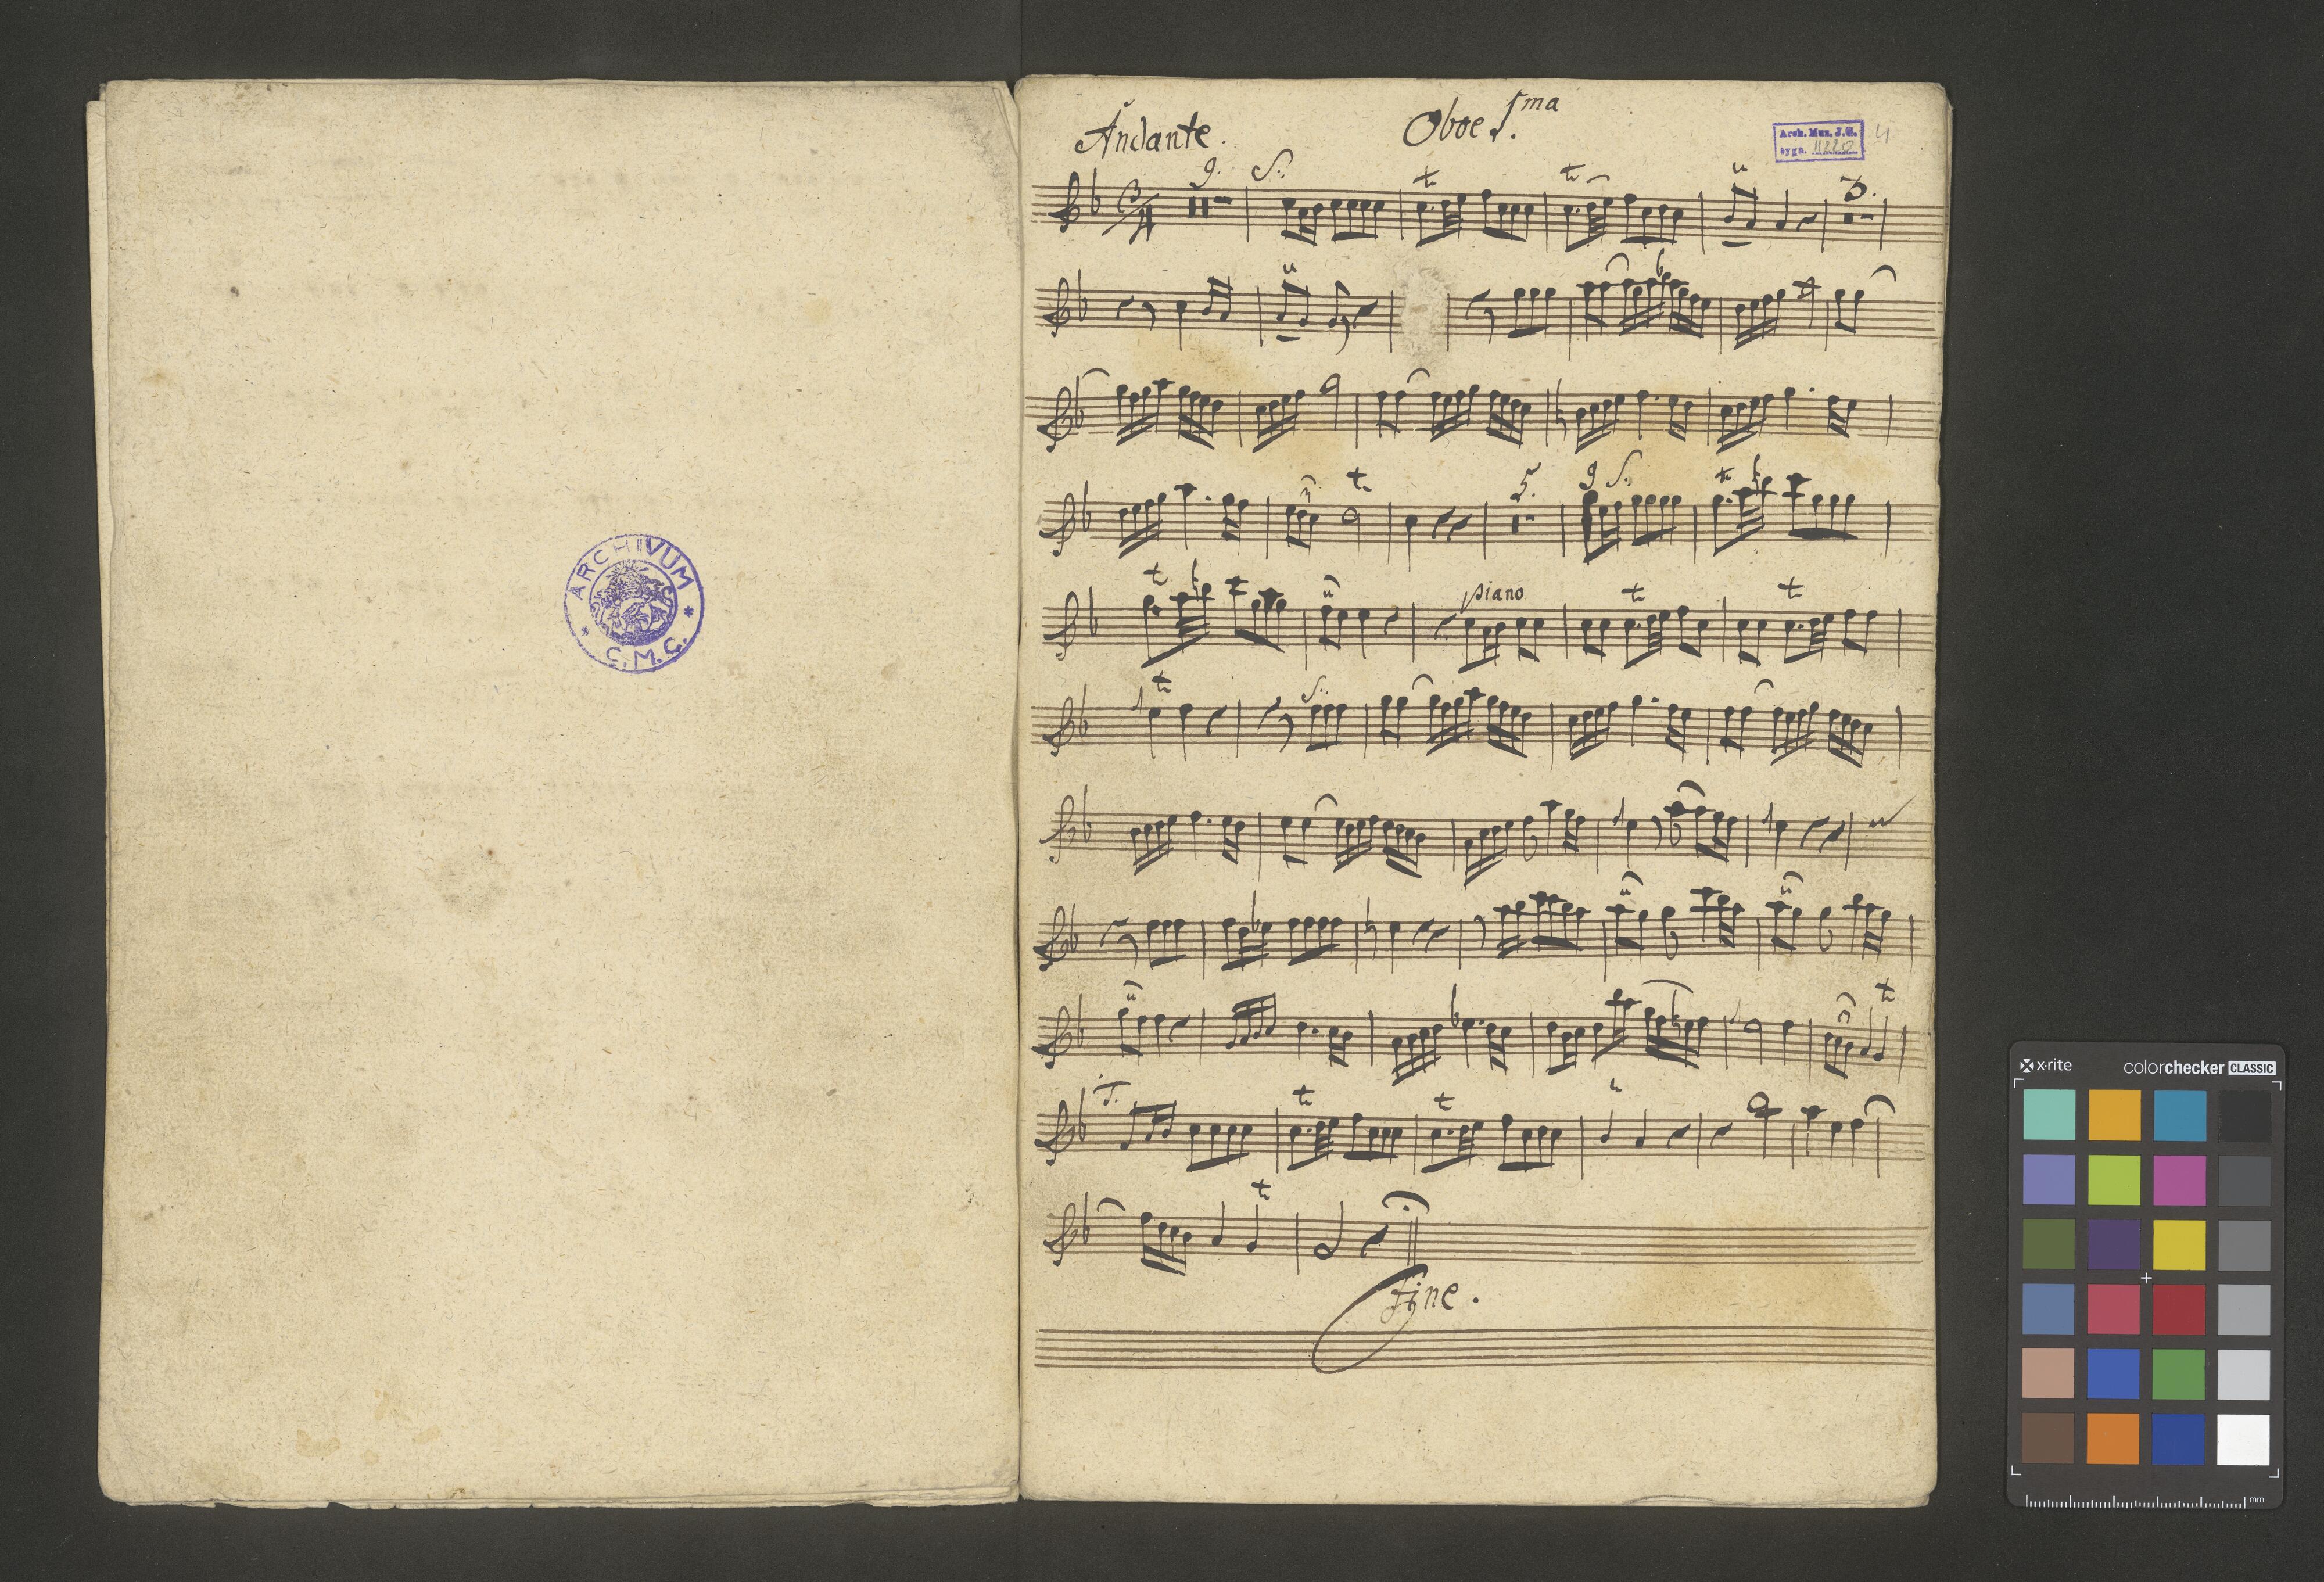 ARCHIVUM
C.M.C.
Andante.
Oboe 1.ma
Arch. Muz. J.G.
sygn.
4
9.
S:
3/4
3.
5.
9 S:
piano
S:
T.
Fine.
x-rite
colorchecker CLASSIC
mm